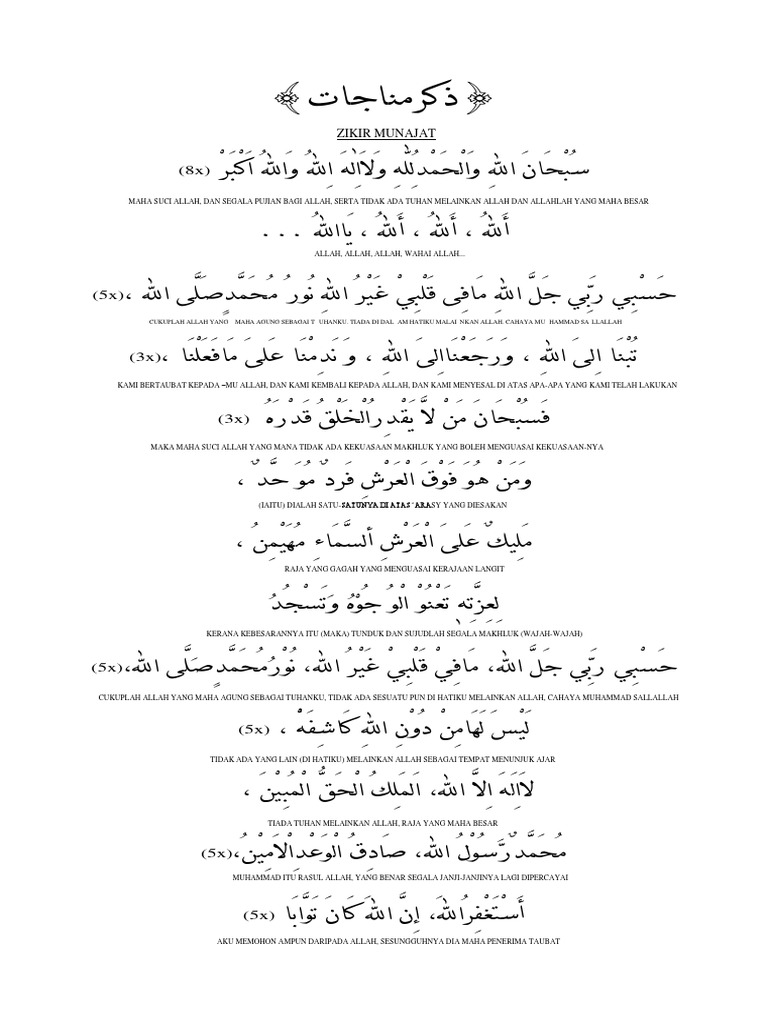 ذكر مناجات
ZIKIR MUNAJAT
سُبْحَانَ اللهِ وَالْحَمْدُ لِلّٰهِ وَلَااِلٰهَ اِلَّا اللهُ وَاللهُ اَكْبَرْ (8x)
MAHA SUCI ALLAH, DAN SEGALA PUJIAN BAGI ALLAH, SERTA TIDAK ADA TUHAN MELAINKAN ALLAH DAN ALLAHLAH YANG MAHA BESAR
أَللهُ ، أَللهُ ، أَللهُ ، يَااللهُ . . .
ALLAH, ALLAH, ALLAH, WAHAI ALLAH...
حَسْبِي رَبِّي جَلَّ اللهِ مَافِى قَلْبِيْ غَيْرُ اللهِ نُورُ مُحَمَّدٍ صَلَّى الله ، (5x)
CUKUPLAH ALLAH YANG MAHA AGUNG SEBAGAI TUHANKU. TIADA DI DALAM HATIKU MALAINKAN ALLAH. CAHAYA MUHAMMAD SALLALLAH
تُبْنَا اِلَى اللهِ ، وَرَجَعْنَااِلَى اللهِ ، وَنَدِمْنَا عَلَىَ مَافَعَلْنَا ، (3x)
KAMI BERTAUBAT KEPADA –MU ALLAH, DAN KAMI KEMBALI KEPADA ALLAH, DAN KAMI MENYESAL DI ATAS APA-APA YANG KAMI TELAH LAKUKAN
فَسُبْحَانَ مَنْ لَا يَقْدِرِ الْخَلْقُ قَدْرَهُ (3x)
MAKA MAHA SUCI ALLAH YANG MANA TIDAK ADA KEKUASAAN MAKHLUK YANG BOLEH MENGUASAI KEKUASAAN-NYA
وَمَنْ هُوَ فَوْقَ الْعَرْشِ فَرْدٌ مُوَحَّدٌ ،
(IAITU) DIALAH SATU-SATUNYA DI ATAS 'ARASY YANG DIESAKAN
مَلِيكٌ عَلَىَ الْعَرْشِ أَلسَّمَاءِ مُهَيْمِنُ ،
RAJA YANG GAGAH YANG MENGUASAI KERAJAAN LANGIT
لِعِزَّتِهِ تَعْنُو الْوُجُوْهُ وَتَسْجُدُ
KERANA KEBESARANNYA ITU (MAKA) TUNDUK DAN SUJUDLAH SEGALA MAKHLUK (WAJAH-WAJAH)
حَسْبِي رَبِّي جَلَّ الله، مَافِيْ قَلْبِيْ غَيْرُ الله، نُوْرُ مُحَمَّدٍ صَلَّى الله، (5x)
CUKUPLAH ALLAH YANG MAHA AGUNG SEBAGAI TUHANKU, TIDAK ADA SESUATU PUN DI HATIKU MELAINKAN ALLAH, CAHAYA MUHAMMAD SALLALLAH
لَيْسَ لَهَامِنْ دُوْنِ اللهِ كَاشِفَهْ ، (5x)
TIDAK ADA YANG LAIN (DI HATIKU) MELAINKAN ALLAH SEBAGAI TEMPAT MENUNJUK AJAR
لَااِلَهَ اِلَّا الله، اَلْمَلِكُ الْحَقُّ الْمُبِيْن ،
TIADA TUHAN MELAINKAN ALLAH, RAJA YANG MAHA BESAR
مُحَمَّدٌ رَّسُوْلُ الله، صَادِقُ الْوَعْدِالْاَمِيْنُ، (5x)
MUHAMMAD ITU RASUL ALLAH, YANG BENAR SEGALA JANJI-JANJINYA LAGI DIPERCAYAI
أَسْتَغْفِرُالله، إِنَّ اللهَ كَانَ تَوَّابَا (5x)
AKU MEMOHON AMPUN DARIPADA ALLAH, SESUNGGUHNYA DIA MAHA PENERIMA TAUBAT